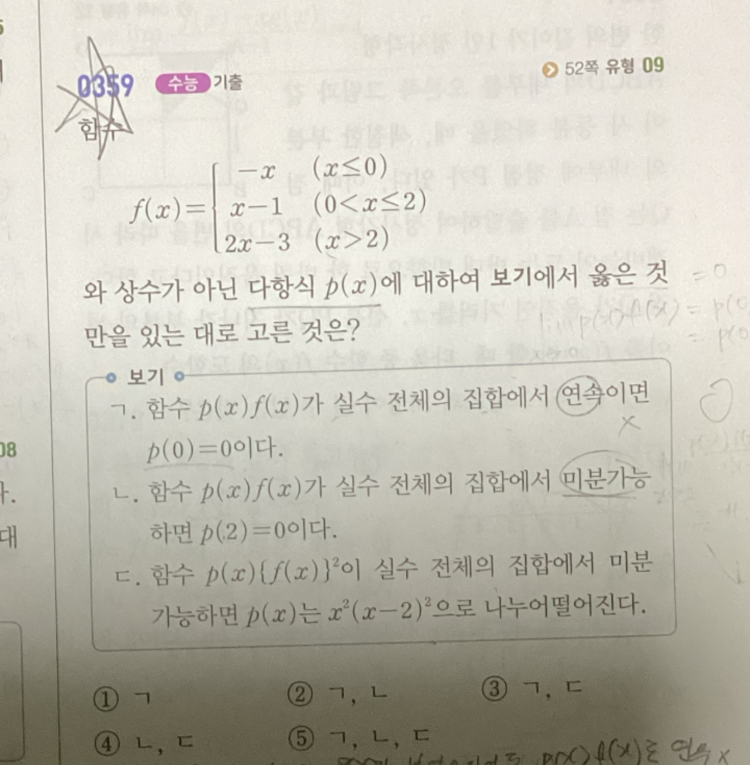 0359 수능 기출 52쪽 유형 09
함수
f(x)={ -x (x≤0)
x-1 (0<x≤2)
2x-3 (x>2)
와 상수가 아닌 다항식 p(x)에 대하여 보기에서 옳은 것
만을 있는 대로 고른 것은?
보기
ㄱ. 함수 p(x)f(x)가 실수 전체의 집합에서 연속이면
p(0)=0이다.
ㄴ. 함수 p(x)f(x)가 실수 전체의 집합에서 미분가능
하면 p(2)=0이다.
ㄷ. 함수 p(x){f(x)}²이 실수 전체의 집합에서 미분
가능하면 p(x)는 x²(x-2)²으로 나누어떨어진다.
① ㄱ ② ㄱ, ㄴ ③ ㄱ, ㄷ
④ ㄴ, ㄷ ⑤ ㄱ, ㄴ, ㄷ